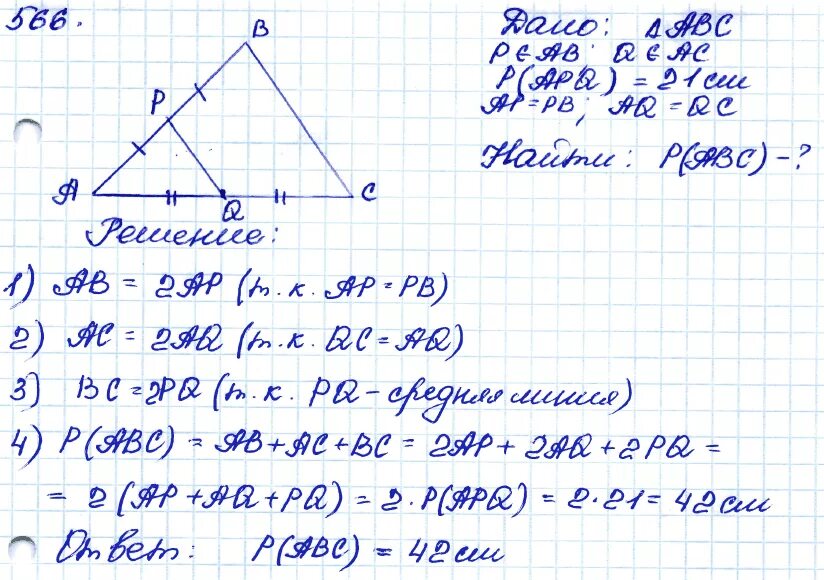 566.
B
P
A
Q
C
Дано: ΔABC
P∈AB; Q∈AC
P(APQ) = 21 см
AP=PB; AQ=QC
Найти: P(ABC) - ?
Решение:
1) AB = 2AP (т.к. AP=PB)
2) AC = 2AQ (т.к. QC=AQ)
3) BC=2PQ (т.к. PQ-средняя линия)
4) P(ABC) = AB+AC+BC = 2AP+2AQ+2PQ =
= 2(AP+AQ+PQ) = 2·P(APQ) = 2·21= 42см
Ответ: P(ABC) = 42см